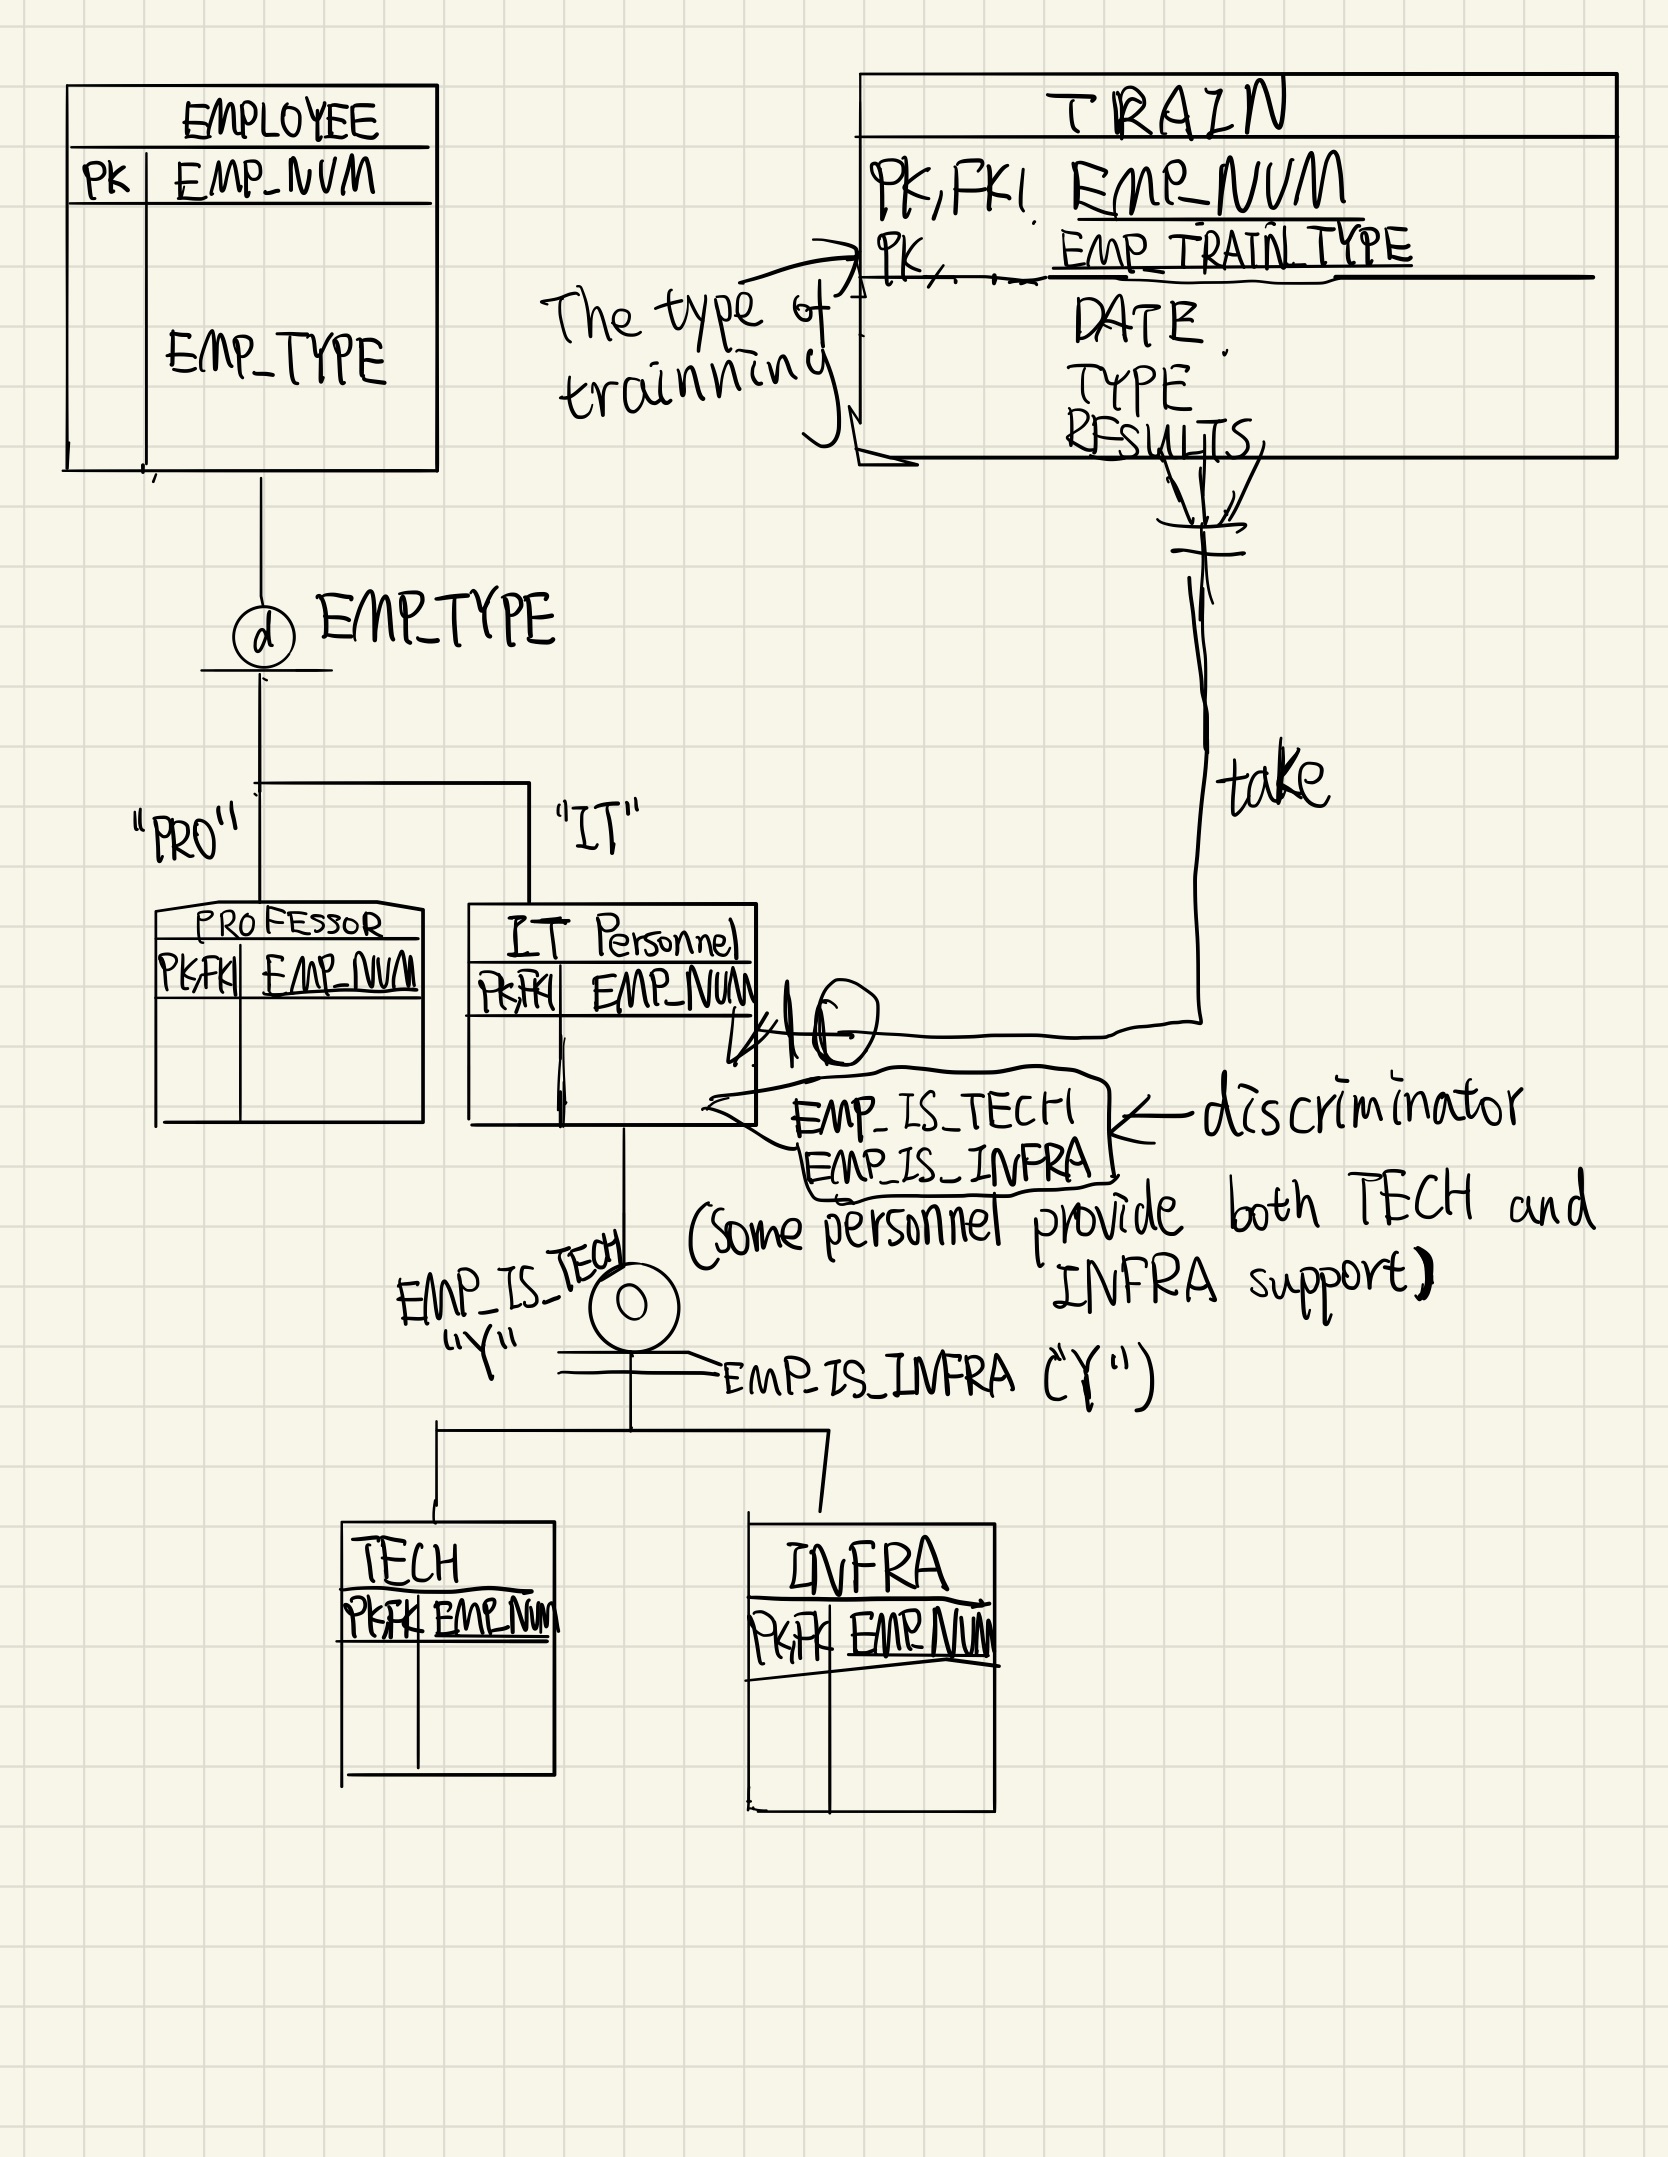 EMPLOYEE
PK EMP_NUM
EMP_TYPE
TRAIN
PK,FK1 EMP_NUM
PK EMP_TRAIN_TYPE
DATE
TYPE
RESULTS
The type of
trainning
d EMP_TYPE
take
"PRO" "IT"
PROFESSOR
PK,FK1 EMP_NUM
IT Personnel
PK,FK1 EMP_NUM
EMP_IS_TECH
EMP_IS_INFRA
discriminator
(some personnel provide both TECH and
INFRA support)
EMP_IS_TECH
"Y"
O
EMP_IS_INFRA ("Y")
TECH
PK,FK EMP_NUM
INFRA
PK,FK EMP_NUM